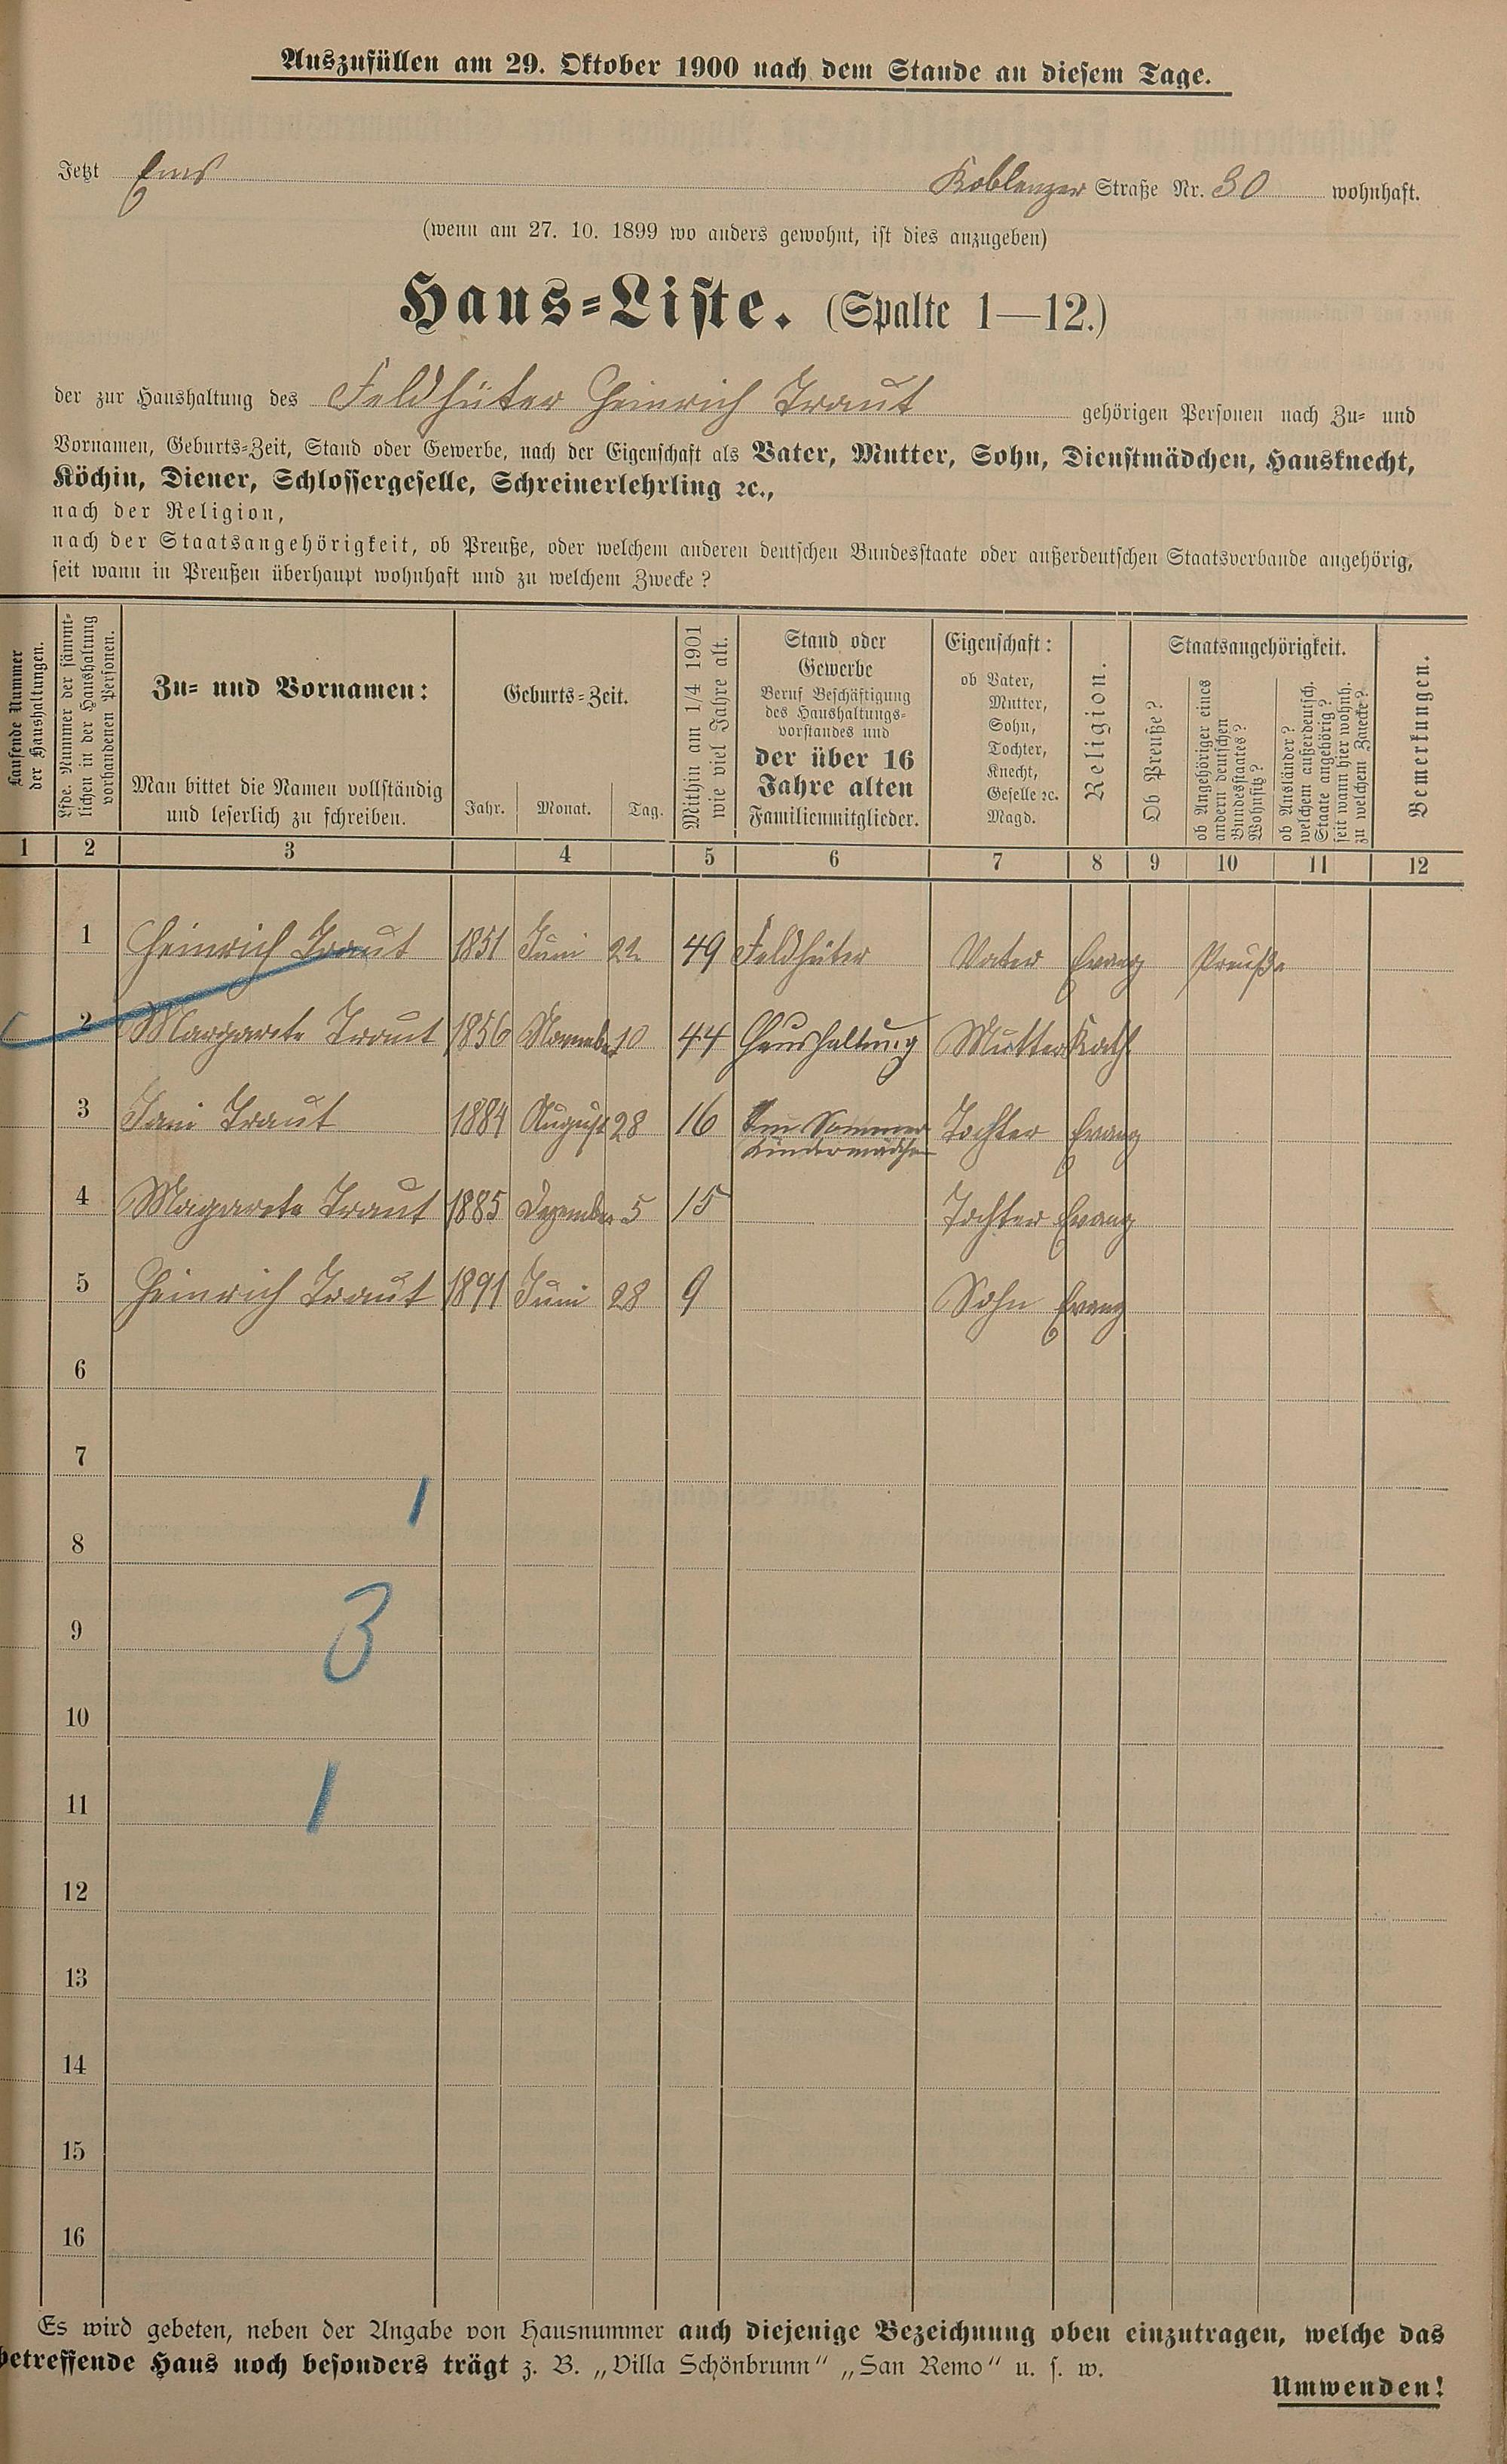 Auszufüllen am 29. Oktober 1900 nach dem Stande an diesem Tage.
Jetzt Ems Koblenzer Straße Nr. 30 wohnhaft.
(wenn am 27. 10. 1899 wo anders gewohnt, ist dies anzugeben)
Haus-Liste. (Spalte 1—12.)
der zur Haushaltung des Feldhüter Heinrich Traut gehörigen Personen nach Zu- und
Vornamen, Geburts-Zeit, Stand oder Gewerbe, nach der Eigenschaft als Vater, Mutter, Sohn, Dienstmädchen, Hausknecht,
Köchin, Diener, Schlossergeselle, Schreinerlehrling ꝛc.,
nach der Religion,
nach der Staatsangehörigkeit, ob Preuße, oder welchem anderen deutschen Bundesstaate oder außerdeutschen Staatsverbande angehörig,
seit wann in Preußen überhaupt wohnhaft und zu welchem Zwecke?
Laufende Nummer
der Haushaltungen.
Lfde. Nummer der sämmt-
lichen in der Haushaltung
vorhandenen Personen.
Zu- und Vornamen:
Man bittet die Namen vollständig
und leserlich zu schreiben.
Geburts-Zeit.
Jahr. Monat. Tag.
Mithin am 1/4 1901
wie viel Jahre alt.
Stand oder
Gewerbe
Beruf Beschäftigung
des Haushaltungs-
vorstandes und
der über 16
Jahre alten
Familienmitglieder.
Eigenschaft:
ob Vater,
Mutter,
Sohn,
Tochter,
Knecht,
Geselle ꝛc.
Magd.
Religion.
Staatsangehörigkeit.
Ob Preuße?
ob Angehöriger eines
andern deutschen
Bundesstaates?
Wohnsitz?
ob Ausländer?
welchem außerdeutsch.
Staate angehörig?
seit wann hier wohnh.
zu welchem Zwecke?
Bemerkungen.
1 2 3 4 5 6 7 8 9 10 11 12
1 Heinrich Traut 1851 Juni 22 49 Feldhüter Vater Evang Preuße
2 Margarete Traut 1856 November 10 44 Haushaltung Mutter Kath.
3 Traut 1884 August 28 16 Im Sommer Tochter Evang
Kindermädchen
4 Magarete Traut 1885 Dezember 5 15 Tochter Evang
5 Heinrich Traut 1891 Juni 28 9 Sohn Evang
6
7
1
8
3
9
10
1
11
12
13
14
15
16
Es wird gebeten, neben der Angabe von Hausnummer auch diejenige Bezeichnung oben einzutragen, welche das
betreffende Haus noch besonders trägt z. B. „Villa Schönbrunn" „San Remo" u. s. w.
Umwenden!